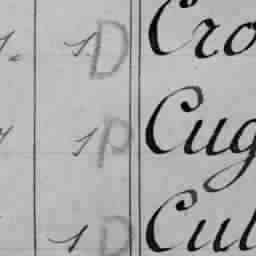 1. D Cro
1 P Cug
1 D Cul